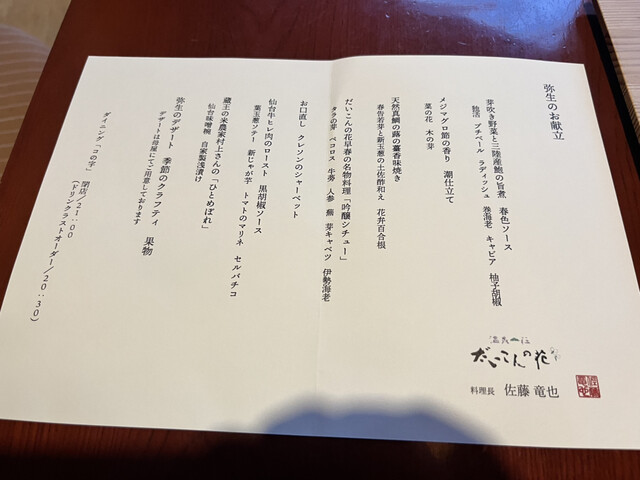 弥生のお献立
芽吹き野菜と三陸産鮑の旨煮　春色ソース
独活　プチベール　ラディッシュ　巻海老　キャビア　柚子胡椒
メジマグロ節の香り　潮仕立て
菜の花　木の芽
天然真鯛の蕗の薹香味焼き
春告若芽と新玉葱の土佐酢和え　花弁百合根
だいこんの花早春の名物料理「吟醸シチュー」
タラの芽　ペコロス　牛蒡　人参　蕪　芽キャベツ　伊勢海老
お口直し　クレソンのシャーベット
仙台牛ヒレ肉のロースト　黒胡椒ソース
葉玉葱ソテー　新じゃが芋　トマトのマリネ　セルバチコ
蔵王の米農家村上さんの「ひとめぼれ」
仙台味噌椀　自家製浅漬け
弥生のデザート　季節のクラフティ　果物
デザートは母屋にてご用意しております
ダイニング「コの字」　閉店/21:00
(ドリンクラストオーダー/20:30)
温泉山荘
だいこんの花
料理長　佐藤 竜也